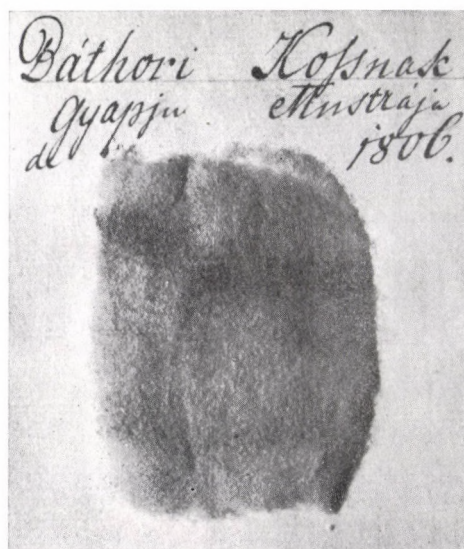 Báthori Kosſnak
Gyapju Mustrája
de 1806.